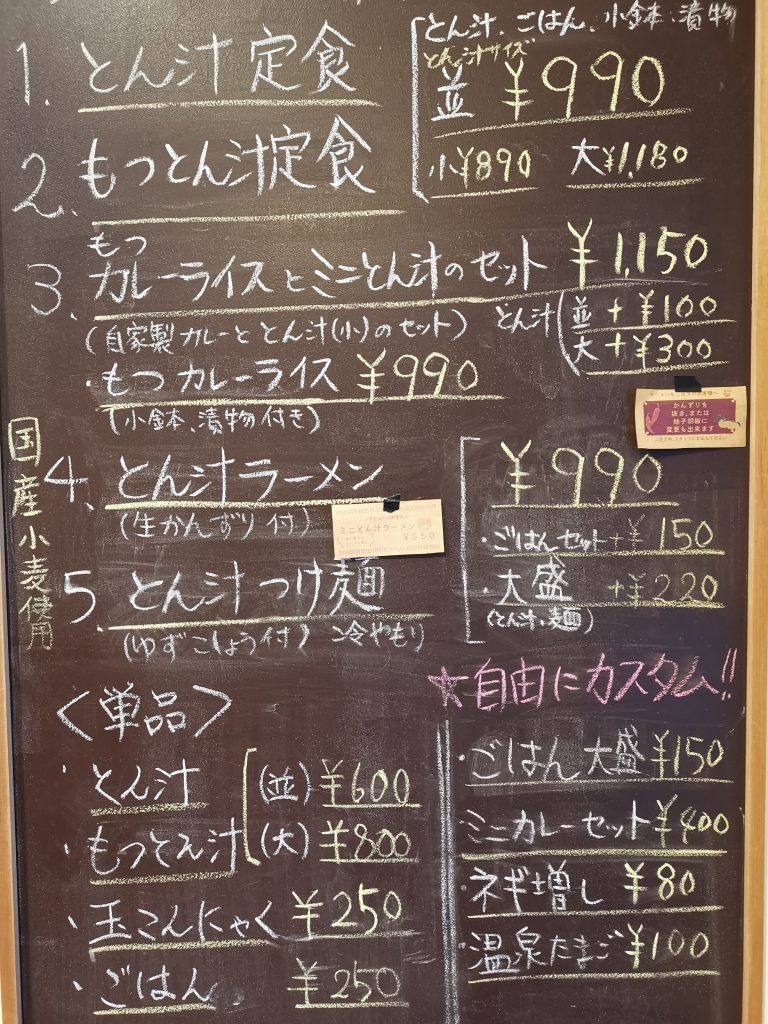 とん汁、ごはん、小鉢、漬物
1. とん汁定食
とん汁サイズ
並 ¥990
小¥890 大¥1,180
2. もつとん汁定食
3. もつカレーライスとミニとん汁のセット ¥1,150
(自家製カレーととん汁(小)のセット)
とん汁(並+¥100
大+¥300
・もつカレーライス ¥990
(小鉢、漬物付き)
かんずりを
抜き、または
柚子胡椒に
変更も出来ます
国産小麦使用
4、とん汁ラーメン ¥990
(生かんずり付)
ミニとん汁ラーメン
¥550
・ごはんセット+¥150
・大盛 +¥220
(とん汁・麺)
5. とん汁つけ麺
(ゆずこしょう付) 冷やもり
<単品>
・とん汁 (並) ¥600
・もつとん汁 (大) ¥800
・玉こんにゃく ¥250
・ごはん ¥250
☆自由にカスタム!!
・ごはん大盛 ¥150
・ミニカレーセット ¥400
・ネギ増し ¥80
・温泉たまご ¥100